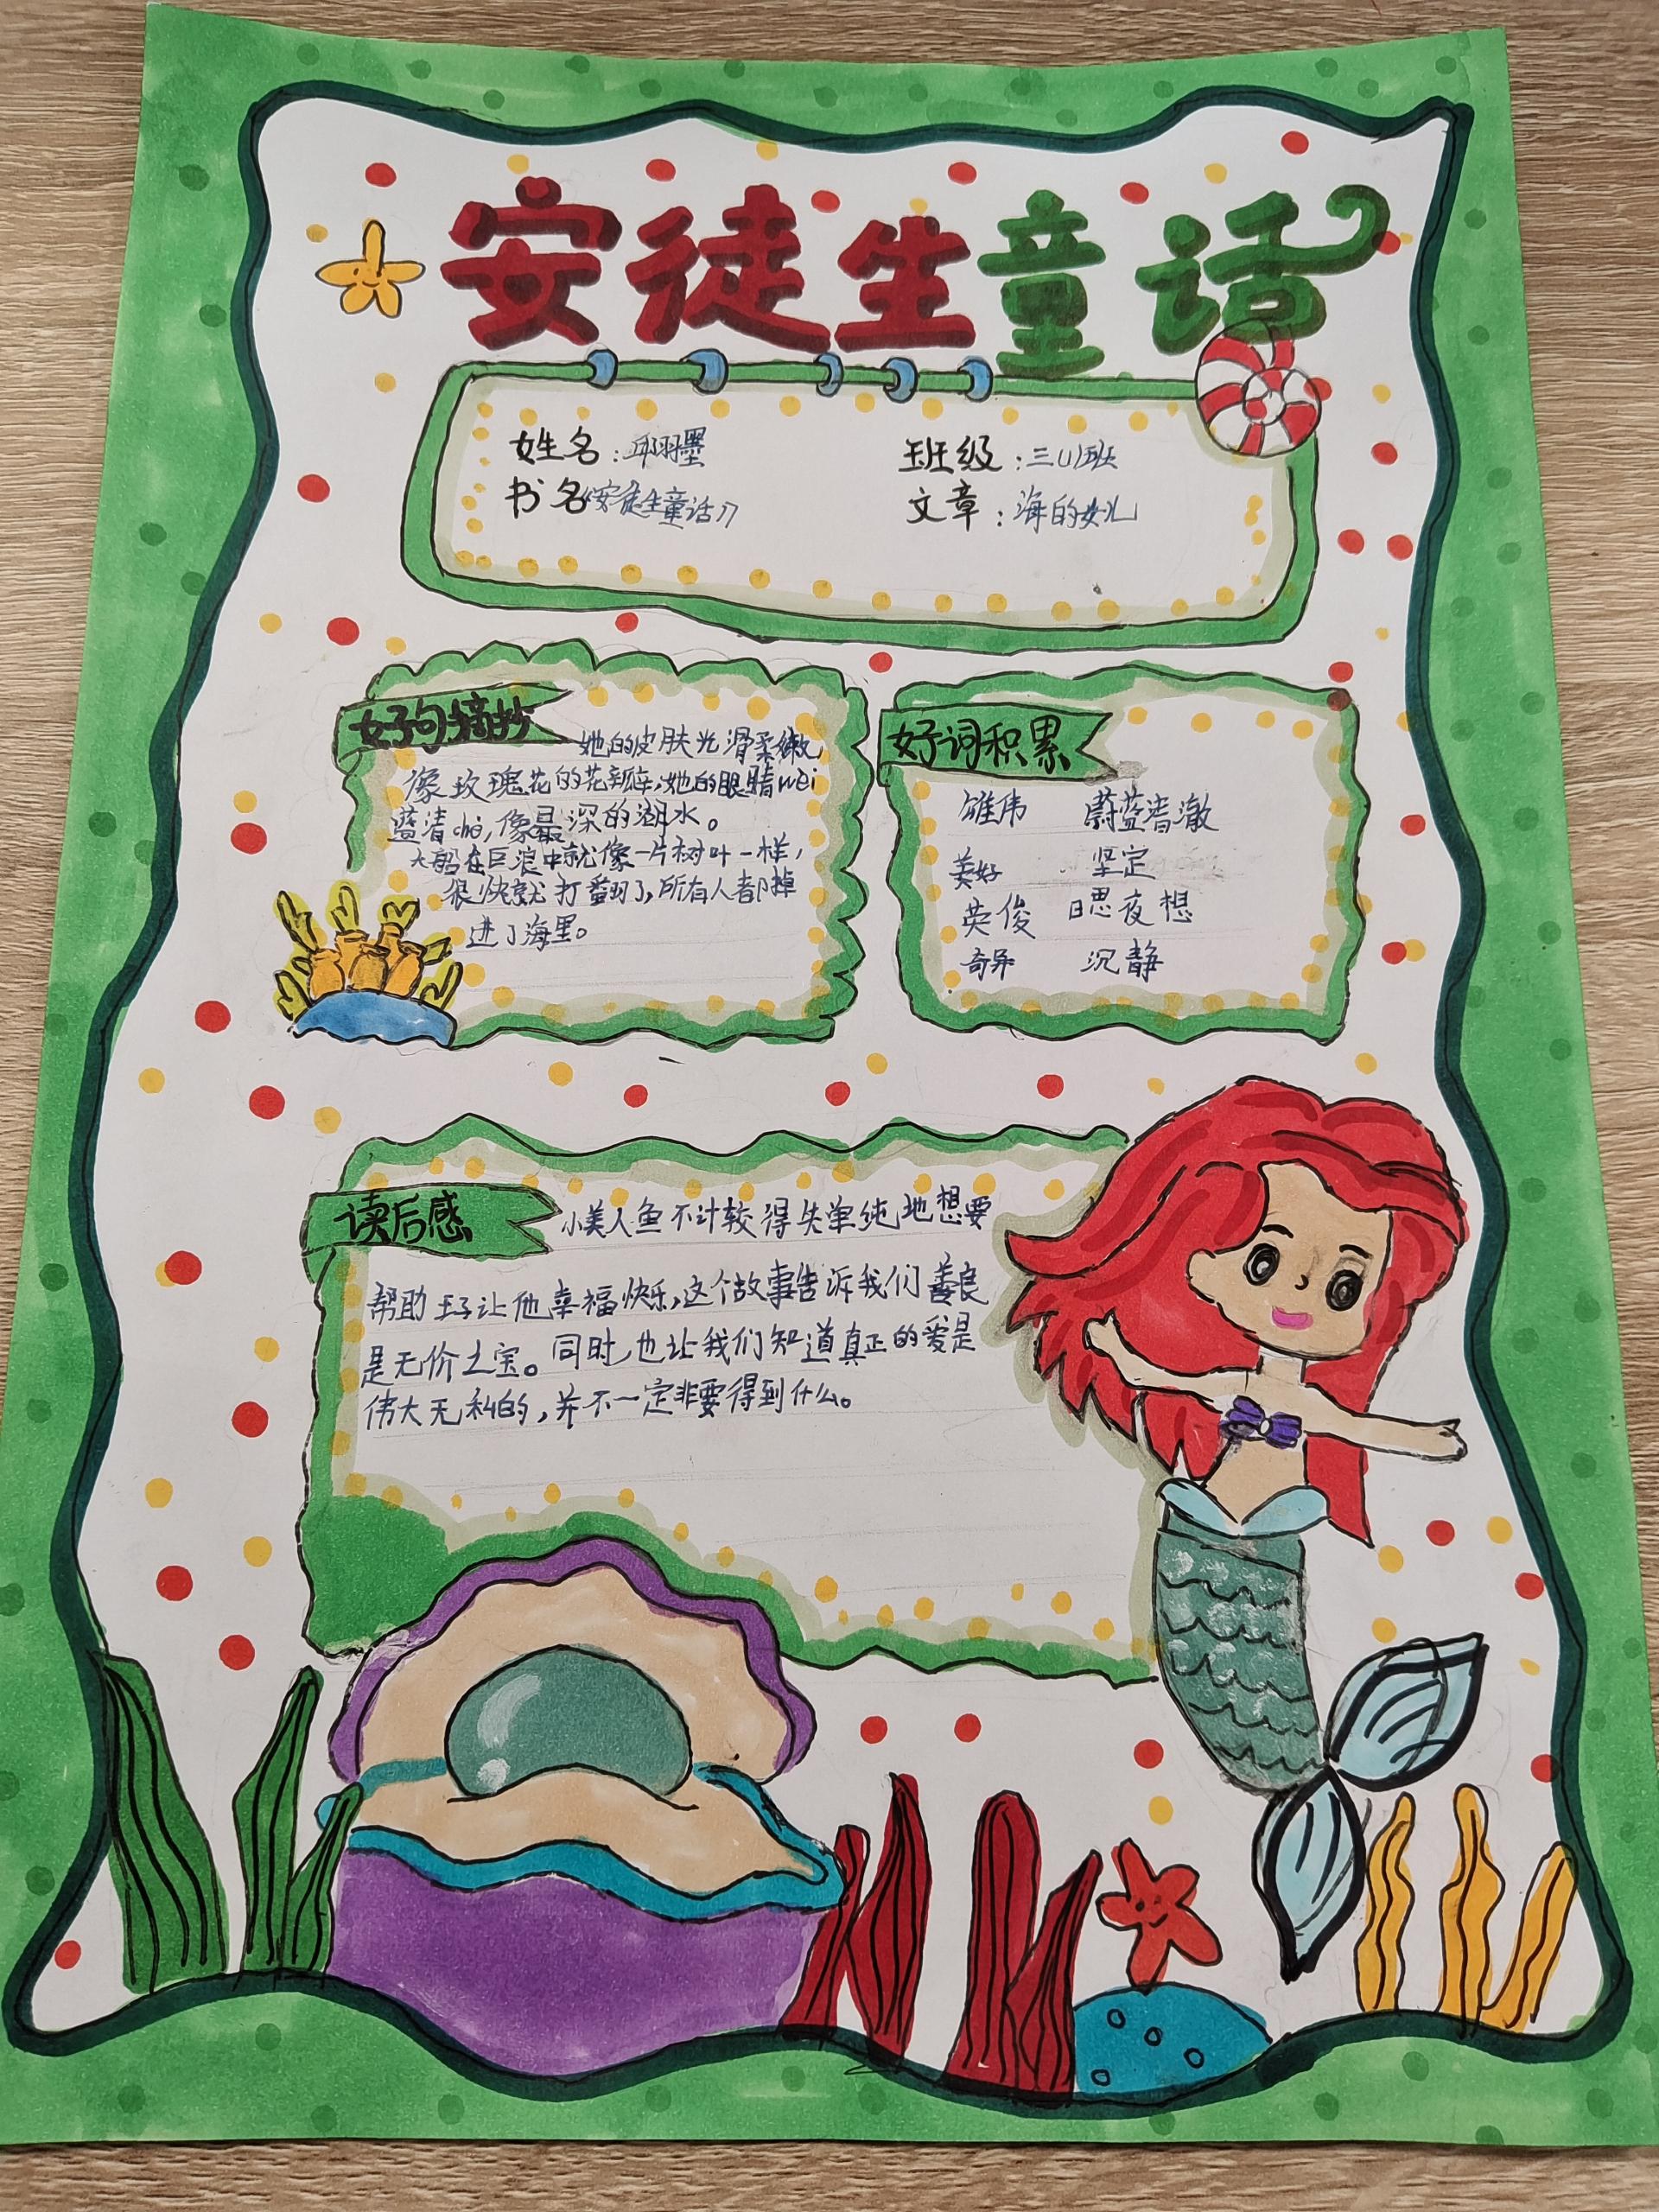 安徒生童话
姓名：邱羽墨
班级：三(1)班
书名《安徒生童话》
文章：海的女儿
好句摘抄
她的皮肤光滑柔嫩
像玫瑰花的花瓣，她的眼睛wèi
蓝清chè，像最深的湖水。
大船在巨浪中就像一片树叶一样，
很快就打翻了，所有人都掉
进了海里。
好词积累
雄伟 蔚蓝清澈
美好 坚定
英俊 日思夜想
奇异 沉静
读后感
小美人鱼不计较得失单纯地想要
帮助王子让他幸福快乐，这个故事告诉我们善良
是无价之宝。同时也让我们知道真正的爱是
伟大无私的，并不一定非要得到什么。